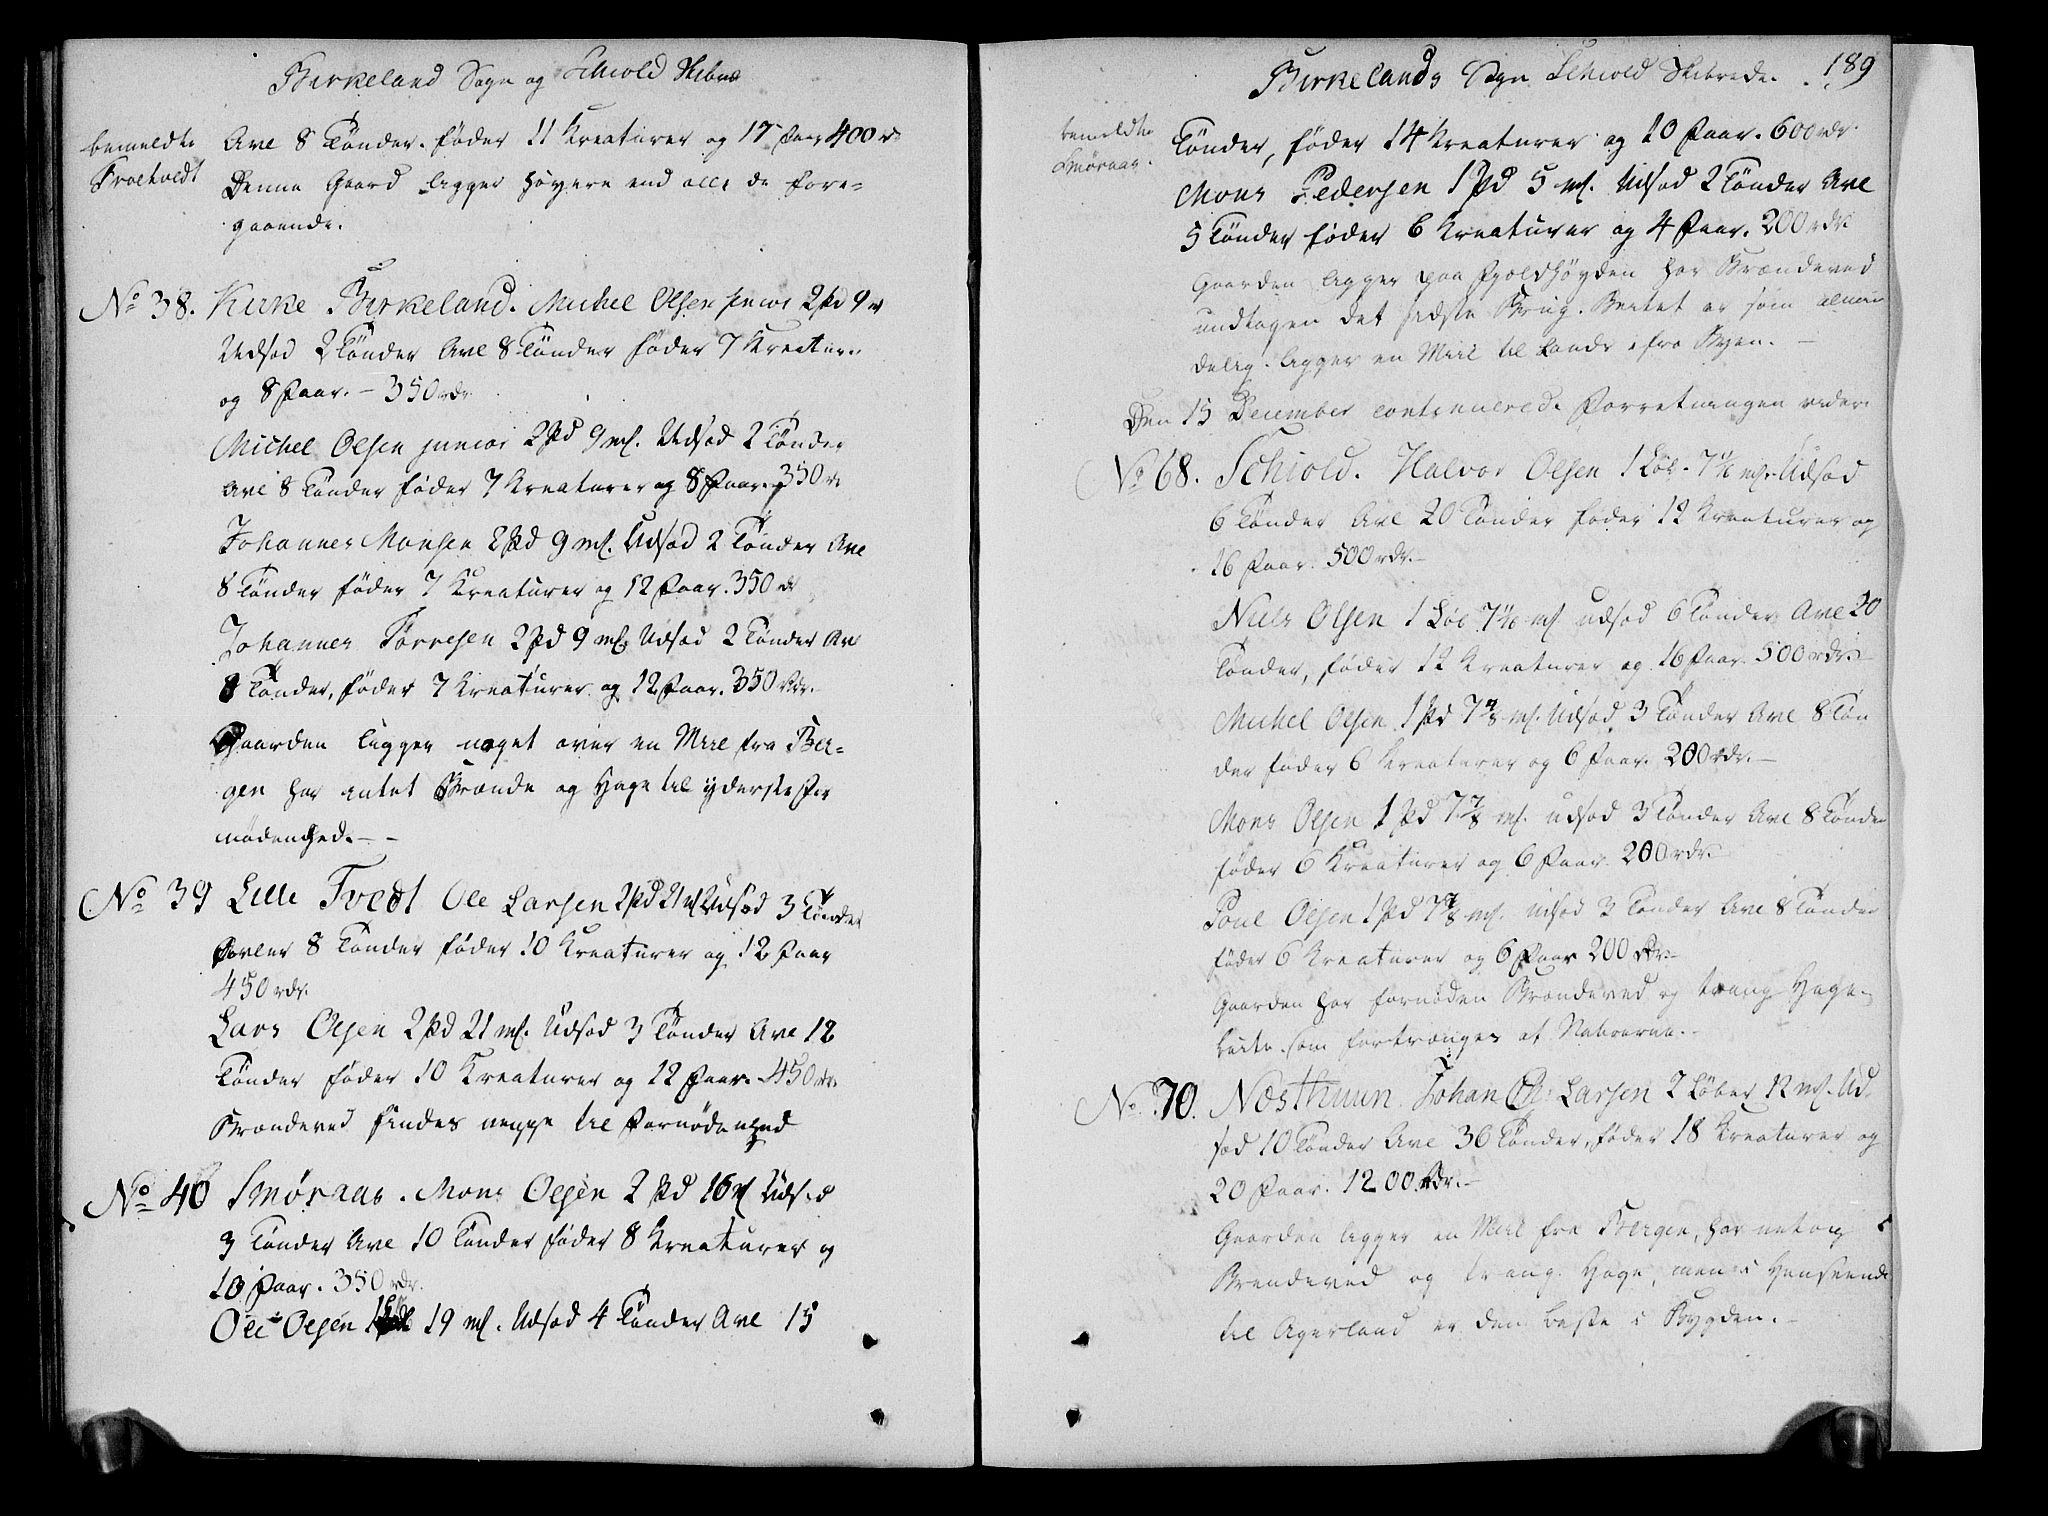 Birkeland Sogn og Schiold Skibre
bemeldte
Troetvedt
Avl 8 Tønder. føder 11 Kreaturer og 17 Faar 400 r
Denne Gaard ligger høyere end alle de fore=
gaaende.
No 38. Kirke Birkeland. Michel Olsen senior 2 Pd 9 m
Udsod 2 Tønder Avl 8 Tønder føder 7 Kreatur.
og 8 Faar. – 350 rdr
Michel Olsen junior 2 Pd 9 ml. Udsod 2 Tønder
Avl 8 Tønder føder 7 Kreaturer og 8 Faar. 350 r
Johannes Monsen 2 Pd 9 ml. Udsod 2 Tønder Avl
8 Tønder føder 7 Kreaturer og 12 Faar. 350 rd
Johannes Torresen 2 Pd 9 ml. Udsod 2 Tønder Av
8 Tønder, føder 7 Kreaturer og 12 Faar. 350 Rdr.
Gaarden ligger noget over en Miil fra Ber=
gen har intet Brænde og Hage til yderste For
nødenhed. – -
No 39 Lille Tvedt Ole Larsen 2 Pd 21 ml Udsod 3 Tønder
Avler 8 Tønder føder 10 Kreaturer og 12 Faar
450 rdr.
Lars Olsen 2 Pd 21 ml. Udsod 3 Tønder Avl 12
Tønder føder 10 Kreaturer og 12 Faar. 450 rdr.
Brændeved findes til Fornødenhed
No 40 Smøraas. Mons Olsen 2 Pd 16 ml Udsod
3 Tønder Avl 10 Tønder føder 8 Kreaturer og
10 Faar. 350 rdr.
Ole Olsen 1 19 ml. Udsod 4 Tønder Avl 15
Birkelands Sogn Schiold Skibrede. 189
bemeldte
Smøraas.
Tønder, føder 14 Kreaturer og 10 Faar. 600 rdr.
Mons Pedersen 1 Pd 5 ml. Udsod 2 Tønder Avl
5 Tønder føder 6 Kreaturer og 4 Faar. 200 rdr.
Gaarden ligger paa Fjeldhøyden har Brændeved
undtagen det sidste Brug. Beitet er som almin
delig. ligger en Miil til Lands fra Byen. –
Den 15 December continuerede Forretningen videre
No 68. Schiold. Halvor Olsen 1 Løb. 7 1/2 ml. Udsod
6 Tønder Avl 20 Tønder føder 12 Kreaturer og
16 Faar. 500 rdr. –
Niels Olsen 1 Løb 7 1/2 ml udsod 6 Tønder Avl 20
Tønder, føder 12 Kreaturer og 16 Faar. 500 rdr. –
Michel Olsen 1 Pd 7 7/8 ml. Udsod 3 Tønder Avl 8 Tøn
der føder 6 Kreaturer og 6 Faar. 200 rdr. –
Mons Olsen 1 Pd 7 7/8 ml. udsod 3 Tønder Avl 8 Tønder
føder 6 Kreaturer og 6 Faar 200 rdr.
Poul Olsen 1 Pd 7 7/8 ml. udsod 3 Tønder Avl 8 Tønder
føder 6 Kreaturer og 6 Faar 200 Rdr. –
Gaarden har fornøden Brændeved og trang Hage=
beite som fortrænges af Naboerne. –
No 70. Nøsthuun Johan Larsen 2 Løber 12 ml. Ud
sod 10 Tønder Avl 36 Tønder, føder 18 Kreaturer og
20 Faar. 1200 Rdr. –
Gaarden ligger en Miil fra Bergen, har netop
Brendeved og trang Hage, men i Henseende
til Agerland er den beste i Bygden. –